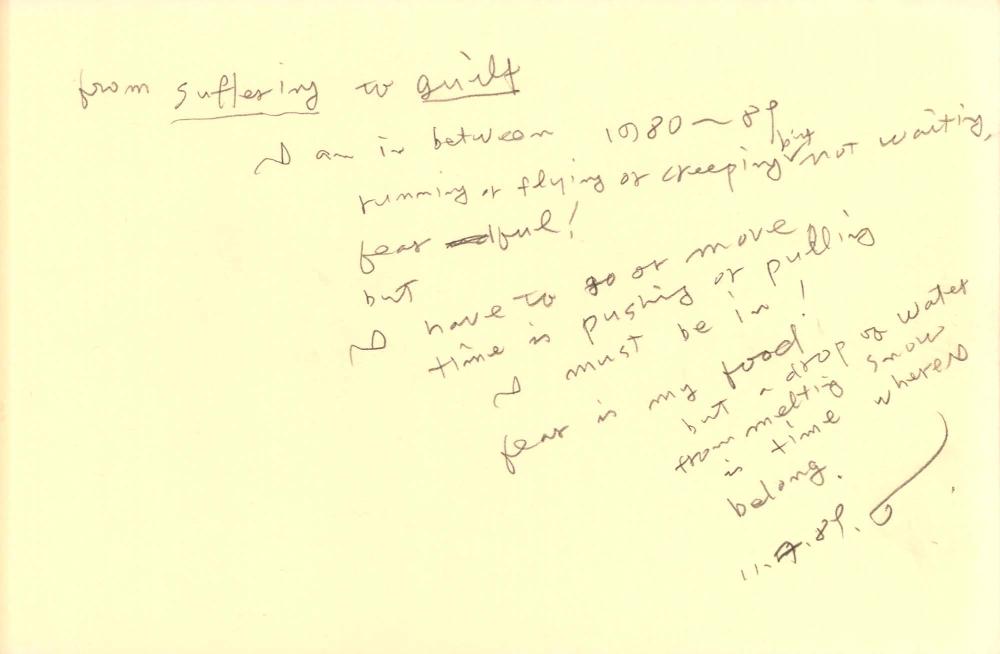 from suffering to guilt
I am in between 1980 ~ 89
running or flying or creeping but not waiting,
fear ful!
but
I have to go or move
time is pushing or pulling
I must be in !
fear is my food!
but a drop of water
from melting snow
is time where I
belong.
11. 7. 89.